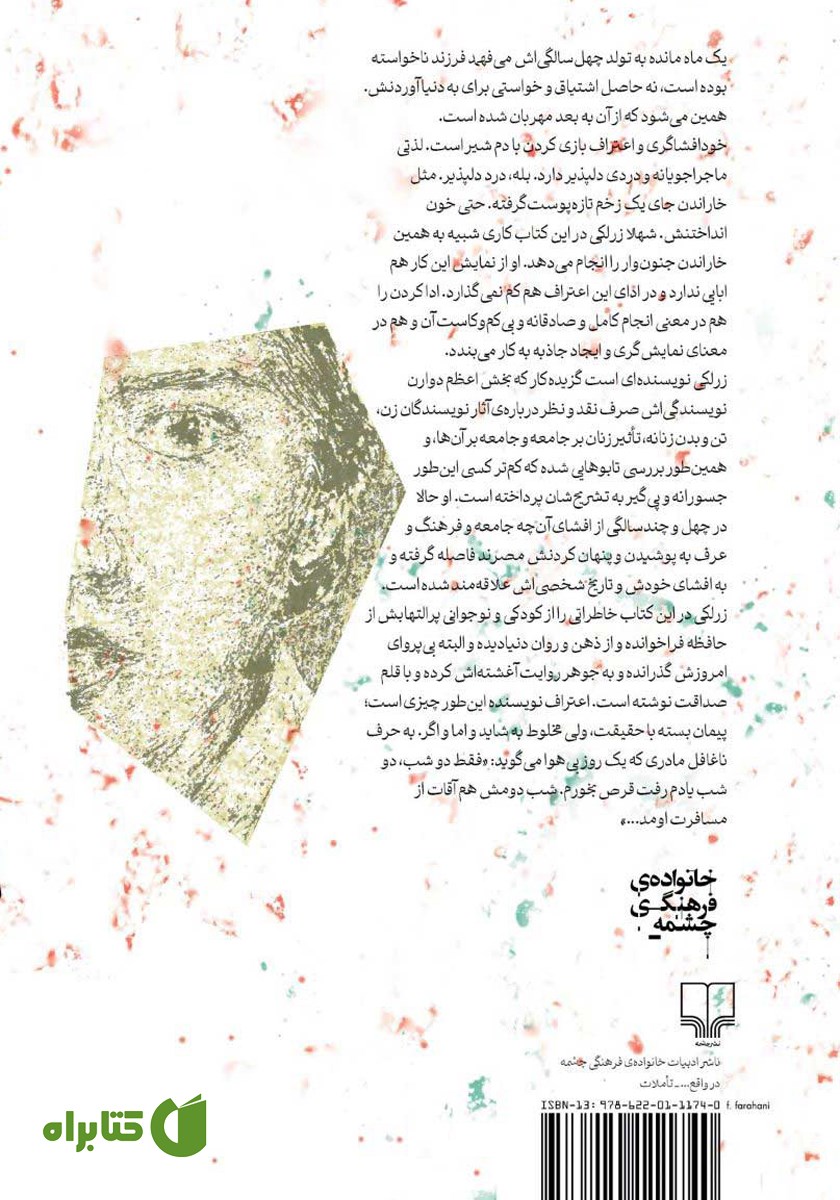 یک ماه مانده به تولد چهل‌سالگی‌اش می‌فهمد فرزند ناخواسته
بوده است، نه حاصل اشتیاق و خواستی برای به دنیا آوردنش.
همین می‌شود که از آن به بعد مهربان شده است.
خودافشاگری و اعتراف بازی کردن با دم شیر است. لذتی
ماجراجویانه و دردی دلپذیر دارد. بله، درد دلپذیر. مثل
خاراندن جای یک زخم تازه‌پوست‌گرفته. حتی خون
انداختنش. شهلا زرلکی در این کتاب کاری شبیه به همین
خاراندن جنون‌وار را انجام می‌دهد. او از نمایش این کار هم
ابایی ندارد و در ادای این اعتراف هم کم نمی‌گذارد. ادا کردن را
هم در معنی انجام کامل و صادقانه و بی‌کم‌وکاست آن و هم در
معنای نمایش‌گری و ایجاد جاذبه به کار می‌بندد.
زرلکی نویسنده‌ای است گزیده‌کار که بخش اعظم دوارن
نویسندگی‌اش صرف نقد و نظر درباره‌ی آثار نویسندگان زن،
تن و بدن زنانه، تأثیر زنان بر جامعه و جامعه بر آن‌ها، و
همین‌طور بررسی تابوهایی شده که کم‌تر کسی این‌طور
جسورانه و پی‌گیر به تشریح‌شان پرداخته است. او حالا
در چهل و چندسالگی از افشای آن‌چه جامعه و فرهنگ و
عرف به پوشیدن و پنهان کردنش مصرند فاصله گرفته و
به افشای خودش و تاریخ شخصی‌اش علاقه‌مند شده است.
زرلکی در این کتاب خاطراتی را از کودکی و نوجوانی پرالتهابش از
حافظه فراخوانده و از ذهن و روان دنیادیده و البته بی‌پروای
امروزش گذرانده و به جوهر روایت آغشته‌اش کرده و با قلم
صداقت نوشته است. اعتراف نویسنده این‌طور چیزی است؛
پیمان بسته با حقیقت، ولی مخلوط به شاید و اما و اگر. به حرف
ناغافل مادری که یک روز بی‌هوا می‌گوید: «فقط دو شب، دو
شب یادم رفت قرص بخورم. شب دومش هم آقات از
مسافرت اومد...»
خانواده‌ی
فرهنگی
چشمه
نشرچشمه
ناشر ادبیات خانواده‌ی فرهنگی چشمه
در واقع... ــ تأملات
ISBN-13: 978-622-01-1174-0 f. farahani
کتابراه